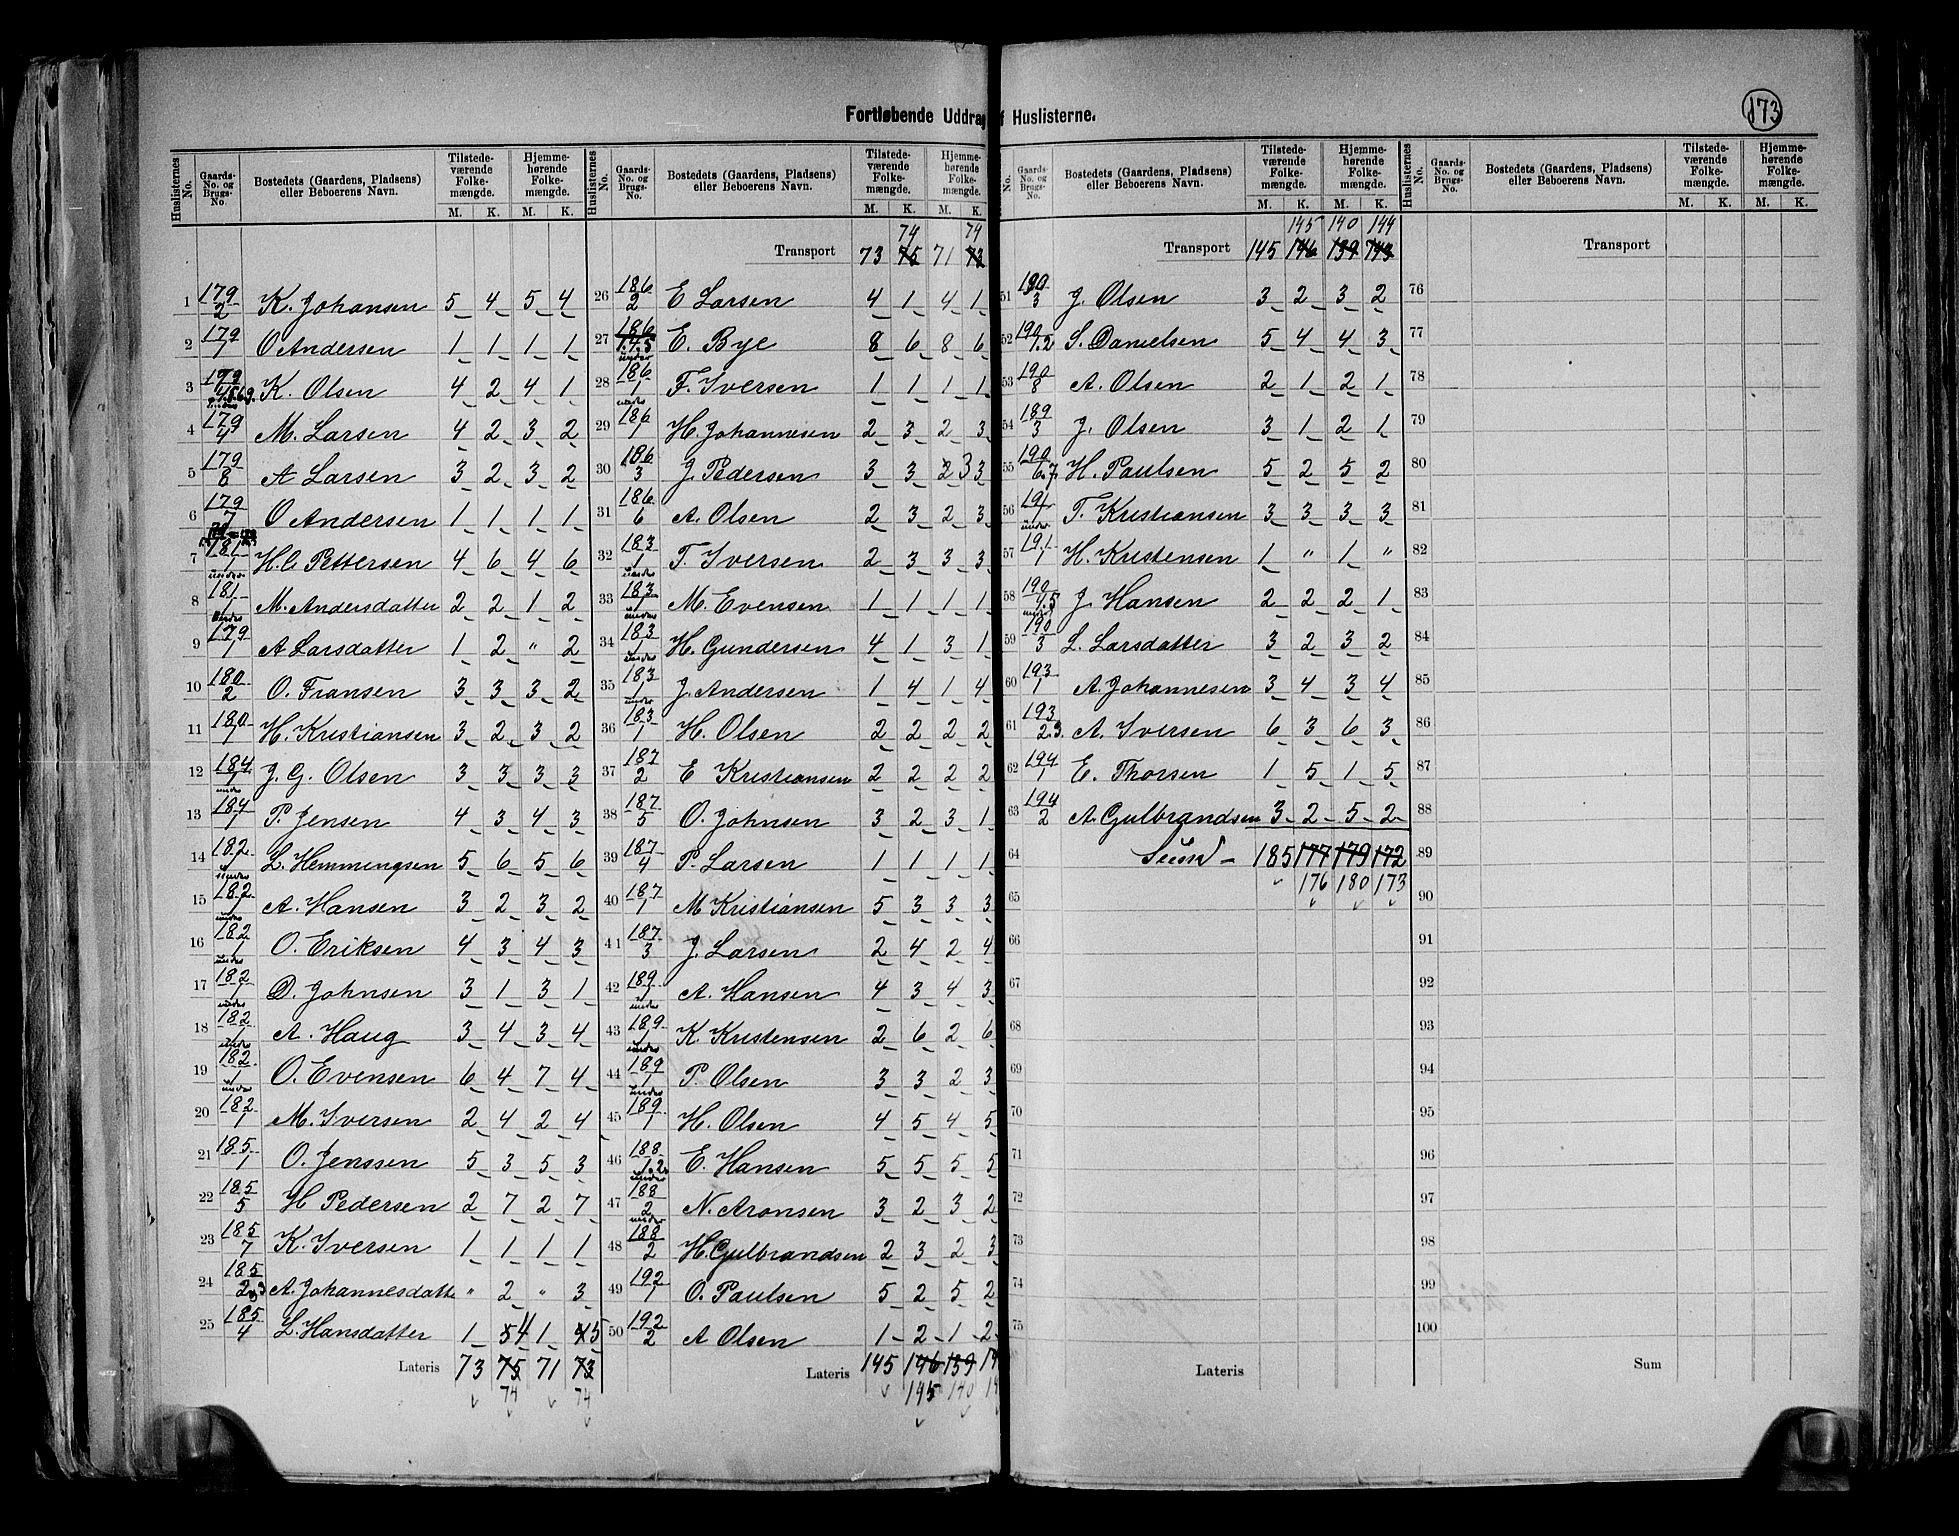 Fortløbende Uddrag af Huslisterne.
173
Huslisternes No. Gaards-No. og Brugs-No. Bostedets (Gaardens, Pladsens) eller Beboerens Navn. Tilstedeværende Folkemængde. M. K. Hjemmehørende Folkemængde. M. K.
1 179/2 K. Johansen 5 4 5 4
2 179/1 O Andersen 1 1 1 1
3 179 K. Olsen 4 2 4 1
4 under 179/4 M. Larsen 4 2 3 2
5 179/8 A Larsen 3 2 3 2
6 179/7 O Andersen 1 1 1 1
7 181/1 H. C Pettersen 4 6 4 6
8 under 181/1 M. Andersdatter 2 2 1 2
9 under 179/1 A Larsdatter 1 2 " 2
10 180/2 O. Fransen 3 3 3 2
11 180/1 H. Kristiansen 3 2 3 2
12 184/1 J. G. Olsen 3 3 3 3
13 under 184/1 P. Jensen 4 3 4 3
14 182/1 L. Hemmingsen 5 6 5 6
15 under 182/1 A. Hansen 3 2 3 2
16 under 182/1 O. Eriksen 4 3 4 3
17 under 182/1 D. Johnsen 3 1 3 1
18 under 182/1 A. Haug 3 4 3 4
19 under 182/1 O. Evensen 6 4 7 4
20 under 182/1 M. Iversen 2 4 2 4
21 185/1 O. Jenssen 5 3 5 3
22 185/5 H Pedersen 2 7 2 7
23 185/7 K. Iversen 1 1 1 1
24 185 A. Johannesdatte " 2 " 3
25 185/4 L. Hansdatter 1 5 4 1 4 5
Lateris 73 75 71 73
74 74
Huslisternes No. Gaards-No. og Brugs-No. Bostedets (Gaardens, Pladsens) eller Beboerens Navn. Tilstedeværende Folkemængde. M. K. Hjemmehørende Folkemængde. M. K.
74 74
Transport 73 75 71 73
26 186/2 E Larsen 4 1 4 1
27 186/1.4.5 E. Bye 8 6 8 6
28 under 186/1 F. Iversen 1 1 1 1
29 under 186/1 H. Johannesen 2 3 2 3
30 186/3 J. Pedersen 3 3 2 3 3
31 186/6 A. Olsen 2 3 2 3
32 183/1 T. Iversen 2 3 3 3
33 under 183/1 M. Evensen 1 1 1 1
34 under 183/1 H. Gundersen 4 1 3 1
35 under 183/1 J. Andersen 1 4 1 4
36 under 183/1 H. Olsen 2 2 2 2
37 187/2 E Kristiansen 2 2 2 2
38 187/5 O. Johnsen 3 2 3 1
39 187/4 P. Larsen 1 1 1 1
40 187/1 M Kristiansen 5 3 3 3
41 187/3 J. Larsen 2 4 2 4
42 189/1 A. Hansen 4 3 4 3
43 under 189/1 K. Kristensen 2 6 2 6
44 under 189/1 P. Olsen 3 3 2 3
45 under 189/1 H. Olsen 4 5 4 5
46 188/1.2 E. Hansen 5 5 5 5
47 under 188/2 N. Aronsen 3 2 3 2
48 under 188/2 H. Gulbrandsen 2 3 2 3
49 192/1 O. Paulsen 5 2 5 2
50 192/2 A Olsen 1 2 1 2
Lateris 145 146 139 14
145 140 14
No. Gaards-No. og Brugs-No. Bostedets (Gaardens, Pladsens) eller Beboerens Navn. Tilstedeværende Folkemængde. M. K. Hjemmehørende Folkemængde. M. K.
145 140 144
Transport 145 146 139 143
51 190/3 J. Olsen 3 2 3 2
52 190/1.2 S. Danielsen 5 4 4 3
53 190/8 A. Olsen 2 1 2 1
54 189/3 J. Olsen 3 1 2 1
55 190/6.7 H. Paulsen 5 2 5 2
56 191/1 T. Kristiansen 3 3 3 3
57 under 191/1 H. Kristensen 1 " 1 "
58 190/4.5 J. Hansen 2 2 2 1
59 under 190/3 L. Larsdatter 3 2 3 2
60 193/1 A. Johannesen 3 4 3 4
61 193/2.3 A. Iversen 6 3 6 3
62 194/1 E. Thorsen 1 5 1 5
63 194/2 A. Gulbrandsen 3 2 5 2
64 185 177 179 172
176 180 173
65
66
67
68
69
70
71
72
73
74
75
Lateris
Huslisternes No. Gaards-No. og Brugs-No. Bostedets (Gaardens, Pladsens) eller Beboerens Navn. Tilstedeværende Folkemængde. M. K. Hjemmehørende Folkemængde. M. K.
Transport
76
77
78
79
80
81
82
83
84
85
86
87
88
89
90
91
92
93
94
95
96
97
98
99
100
Sum